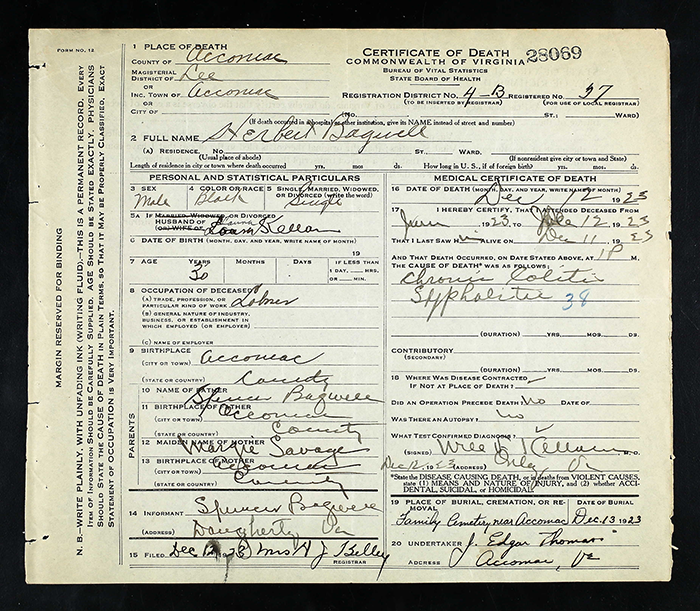 FORM NO. 12
MARGIN RESERVED FOR BINDING
N. B.—WRITE PLAINLY, WITH UNFADING INK (WRITING FLUID).—THIS IS A PERMANENT RECORD. EVERY
ITEM OF INFORMATION SHOULD BE CAREFULLY SUPPLIED. AGE SHOULD BE STATED EXACTLY. PHYSICIANS
SHOULD STATE THE CAUSE OF DEATH IN PLAIN TERMS, SO THAT IT MAY BE PROPERLY CLASSIFIED. EXACT
STATEMENT OF OCCUPATION IS VERY IMPORTANT.
1 PLACE OF DEATH
COUNTY OF Accomac
MAGISTERIAL
DISTRICT OF Lee
OR
INC. TOWN OF Accomac
OR
CITY OF (No. ST.; WARD)
CERTIFICATE OF DEATH 28069
COMMONWEALTH OF VIRGINIA
BUREAU OF VITAL STATISTICS
STATE BOARD OF HEALTH
REGISTRATION DISTRICT NO. 4-B REGISTERED NO. 37
(TO BE INSERTED BY REGISTRAR) (FOR USE OF LOCAL REGISTRAR)
(If death occurred in a hospital or other institution, give its NAME instead of street and number)
2 FULL NAME Herbert Bagwell
(A) RESIDENCE. No. ST. WARD.
(Usual place of abode) (If nonresident give city or town and State)
Length of residence in city or town where death occurred yrs. mos. ds. How long in U. S., if of foreign birth? yrs. mos. ds.
PERSONAL AND STATISTICAL PARTICULARS
3 SEX Male
4 COLOR OR RACE Black
5 SINGLE, MARRIED, WIDOWED, OR DIVORCED (write the word) Single
5A IF MARRIED, WIDOWED, OR DIVORCED
HUSBAND OF
(OR) WIFE OF Kellam
6 DATE OF BIRTH (MONTH, DAY, AND YEAR, WRITE NAME OF MONTH) 19
7 AGE YEARS 30 MONTHS DAYS IF LESS THAN
1 DAY, HRS.
OR MIN.
8 OCCUPATION OF DECEASED
(A) TRADE, PROFESSION, OR
PARTICULAR KIND OF WORK Laborer
(B) GENERAL NATURE OF INDUSTRY,
BUSINESS, OR ESTABLISHMENT IN
WHICH EMPLOYED (OR EMPLOYER)
(C) NAME OF EMPLOYER
9 BIRTHPLACE Accomac
(CITY OR TOWN)
(STATE OR COUNTRY) County
PARENTS
10 NAME OF FATHER Spencer Bagwell
11 BIRTHPLACE OF FATHER Accomac
(CITY OR TOWN)
(STATE OR COUNTRY) County
12 MAIDEN NAME OF MOTHER Margie Savage
13 BIRTHPLACE OF MOTHER Accomac
(CITY OR TOWN)
(STATE OR COUNTRY) County
14 INFORMANT Spencer Bagwell
(ADDRESS) Daugherty Va
15 FILED Dec 12 1923 Mrs A J Belley
REGISTRAR
MEDICAL CERTIFICATE OF DEATH
16 DATE OF DEATH (MONTH, DAY, AND YEAR, WRITE NAME OF MONTH)
Dec 12 1923
17 I HEREBY CERTIFY, THAT I ATTENDED DECEASED FROM
1923, TO Dec 12 1923
THAT I LAST SAW H ALIVE ON Dec 11 1923
AND THAT DEATH OCCURRED, ON DATE STATED ABOVE, AT 1 P M.
THE CAUSE OF DEATH* WAS AS FOLLOWS:
Chronic Colitis
Sypholitic 38
(DURATION) YRS. MOS. DS.
CONTRIBUTORY
(SECONDARY)
(DURATION) YRS. MOS. DS.
18 WHERE WAS DISEASE CONTRACTED
IF NOT AT PLACE OF DEATH?
DID AN OPERATION PRECEDE DEATH No DATE OF
WAS THERE AN AUTOPSY? No
WHAT TEST CONFIRMED DIAGNOSIS?
(SIGNED) Kellam M. D.
Dec 12, 1923 (ADDRESS) Onley Va
*STATE THE DISEASE CAUSING DEATH, or in deaths from VIOLENT CAUSES,
state (1) MEANS AND NATURE OF INJURY, and (2) whether ACCI-
DENTAL, SUICIDAL, or HOMICIDAL.
19 PLACE OF BURIAL, CREMATION, OR RE-
MOVAL DATE OF BURIAL
Family Cemetry near Accomac Dec. 13 1923
20 UNDERTAKER J. Edgar Thomas
ADDRESS Accomac, Va